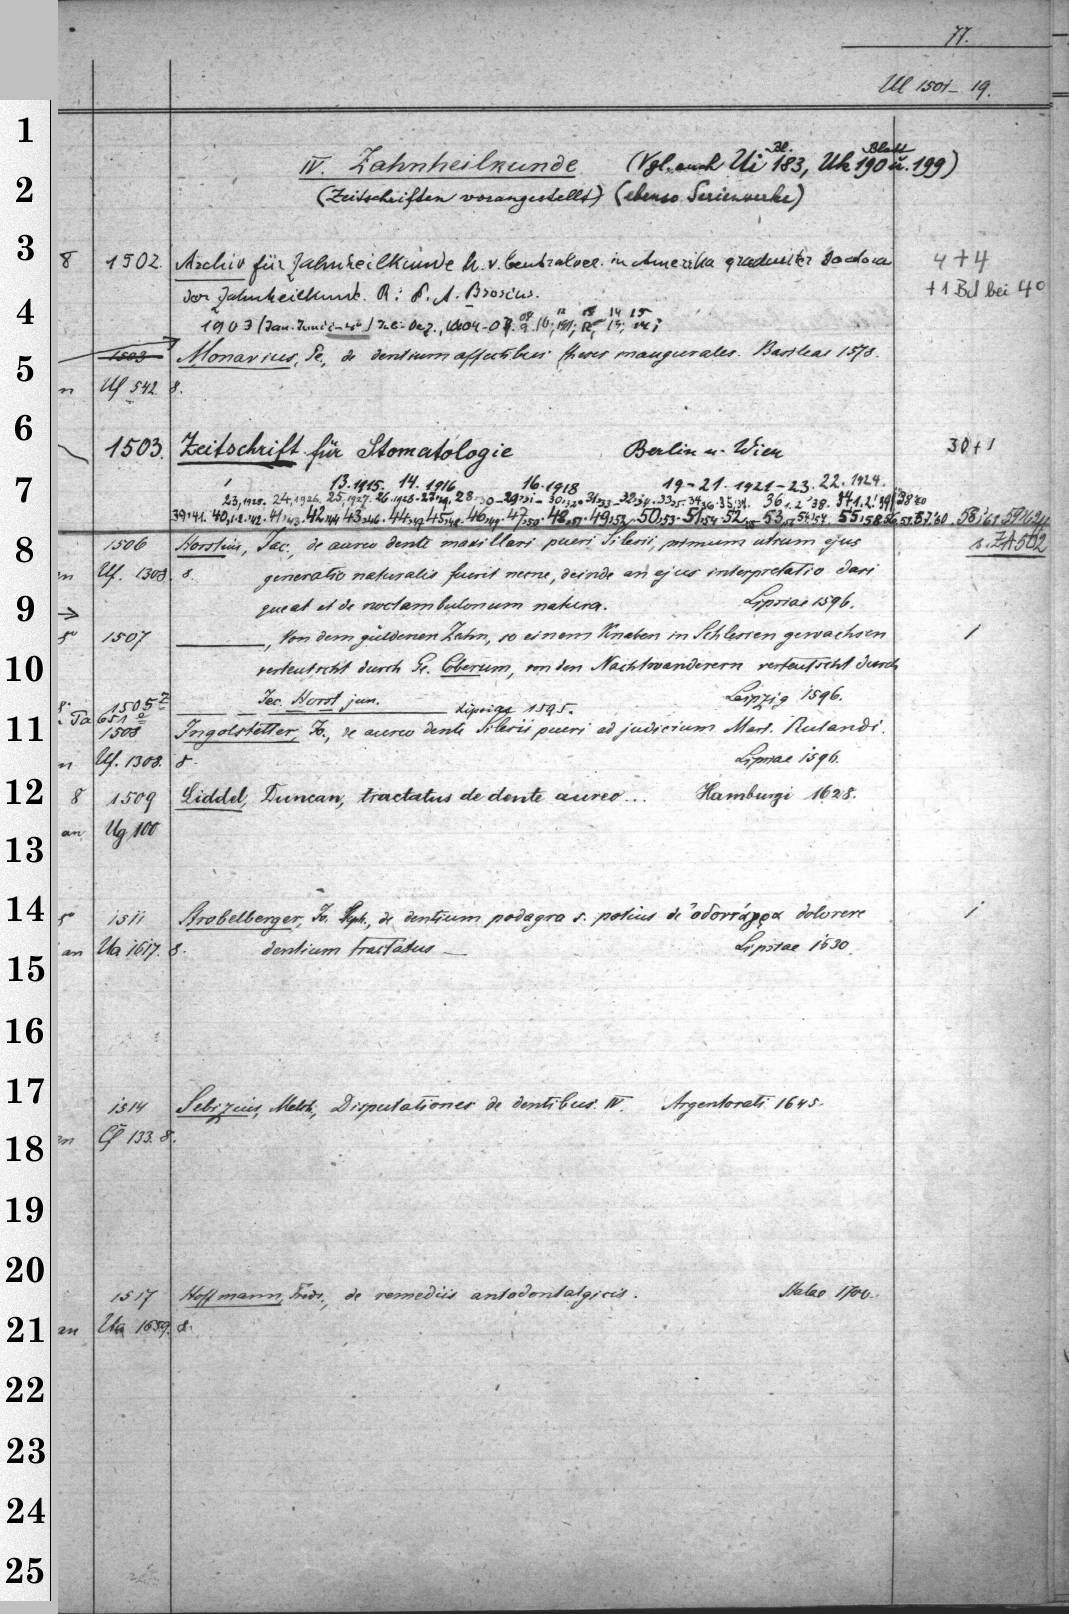 77.
Ul 1501-19.
1
IV. Zahnheilkunde (Vgl. auch Ui Bl. 183, Uk Blatt 190 u. 199)
2
(Zeitschriften vorangestellt) (ebenso Serienwerke)
3
8 1502. Archiv für Zahnheilkunde h. v. Centralver. in Amerika graduirter Doctoren 4+4
der Zahnheilkunde. R: P. A. Brosius. +1 Bd bei 4°
4
1903 (Jan.-Juni in 4°) Juli-Dez., 1904-07.
1503 Monavius, Pe, de dentium affectibus theses inaugurales. Basileae 1578.
5
n Uf 542. 8.
6
1503. Zeitschrift für Stomatologie Berlin u. Wien 30+1
7
13.1915. 14. 1916 16.1918 19-21. 1921-23. 22. 1924.
23,1925. 24,1926. 25,1927. 26,1928.
s. ZA 502
8
1506 Horstius, Jac., de aureo dente maxillari pueri Silesii, primum utrum ejus
n Uf. 1308. 8. generatio naturalis fuerit necne, deinde an ejus interpretatio dari
9
queat et de noctambulonum natura. Lipsiae 1596.
1507 , Von dem güldenen Zahn, so einem Knaben in Schlesien gewachsen 1
10
verteutscht durch Ge. Coberum, von den Nachtwanderern verteutscht durch
Jac. Horst jun. Leipzig 1596.
1505 Lipsiae 1595.
11
1508 Ingolstetter, Jo., de aureo dente Silesii pueri ad judicium Mart. Rulandi.
n Uf. 1308. 8. Lipsiae 1596.
12
8 1509 Liddel, Duncan, tractatus de dente aureo... Hamburgi 1628.
an Ug 100
13
14
1511 Strobelberger, Jo. Steph., de dentium podagra s. potius de ὀδοντάγρα dolorere 1
an Ua 1617. 8. dentium tractatus Lipsiae 1630.
15
16
17
1514 Sebizius, Melch., Disputationes de dentibus. IV. Argentorati 1645.
18
133. 8.
19
20
1517 Hoffmann, Fridr., de remediis antodontalgicis. Halae 1700.
21
an Ua 1659. 8.
22
23
24
25